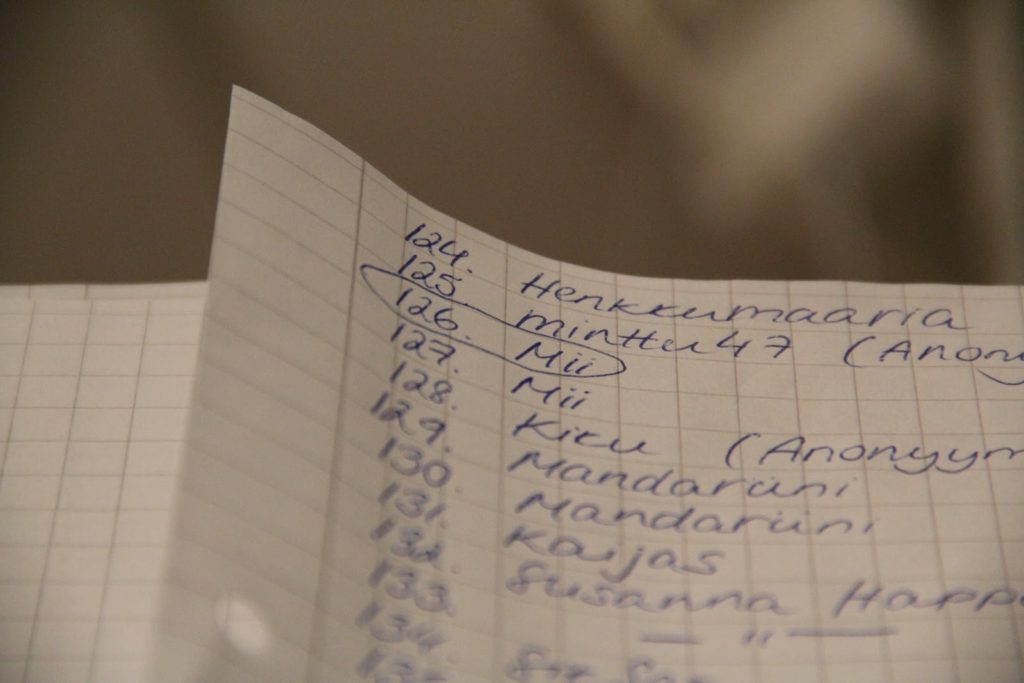 124. Henkkumaaria
125. minttu47 (Anony
126. Mii
127. Mii
128. Kiku (Anonyym
129. Mandariini
130. Mandariini
131. Kaijas
132. Susanna Happ
133. — " —
134.
135.